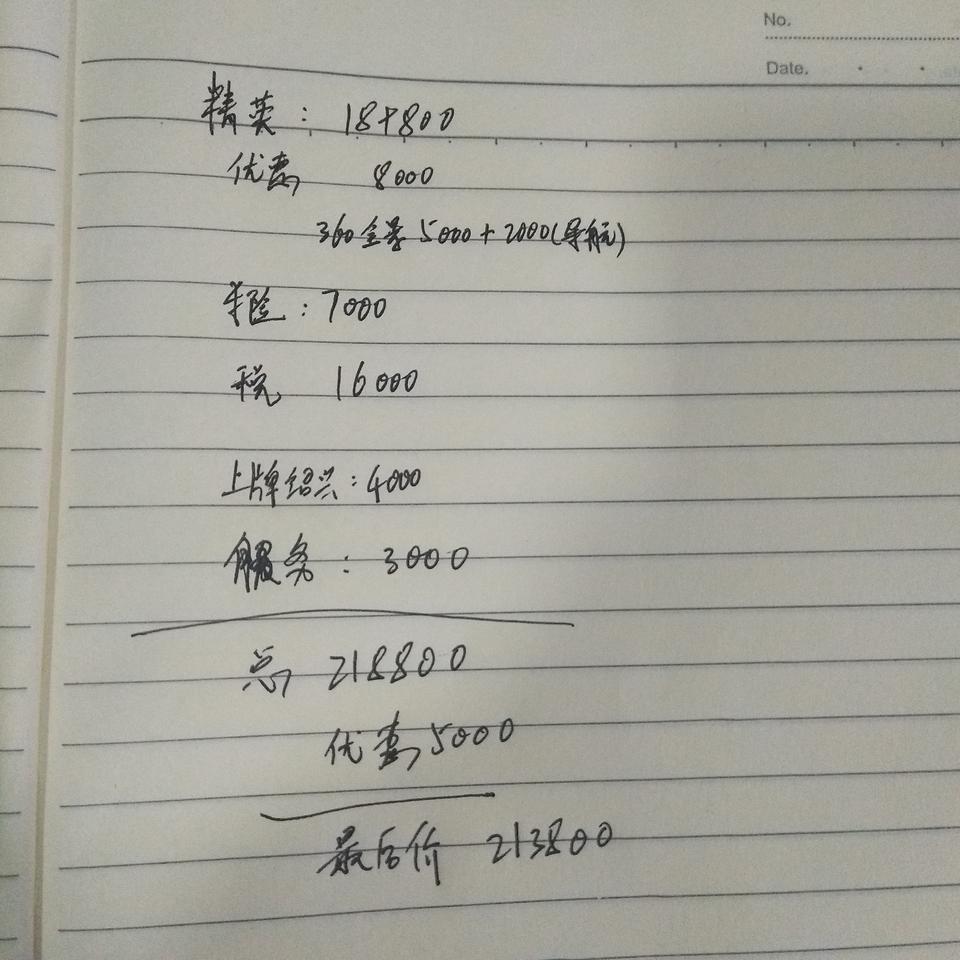 No.
Date.
精英：189800
优惠 8000
360全景 5000+2000(导航)
车险：7000
税 16000
上牌绍兴：4000
服务：3000
总 218800
优惠5000
最后价 213800